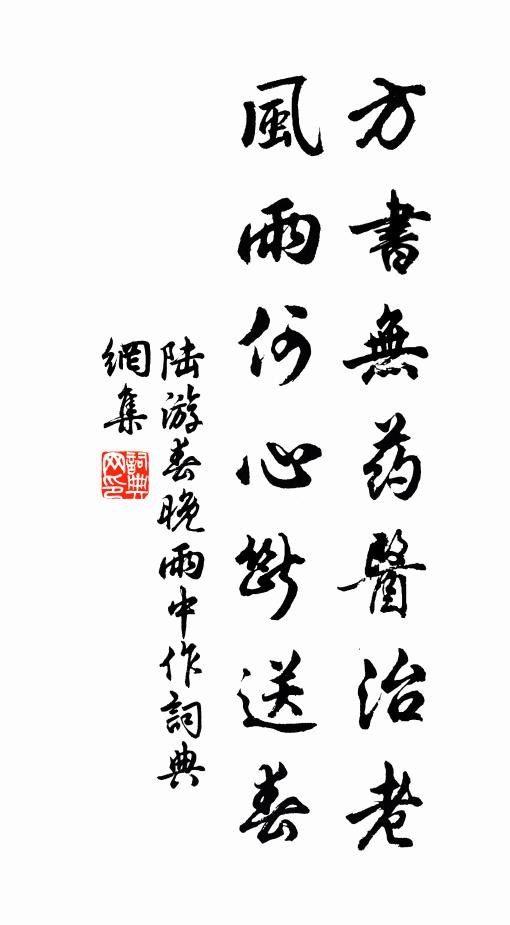 方書無药醫治老
風雨何心斷送春
陸游春晚雨中作詞典
網集
詞典
网印